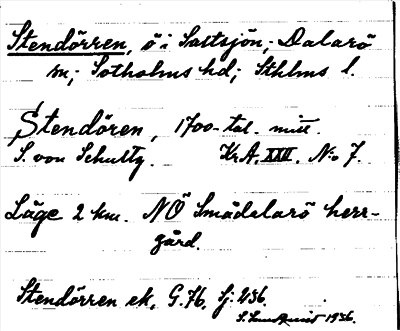 Stendörren, ö i Saltsjön; Dalarö
sn; Sotholms hd; Sthlms l.
Stendören, 1700-tal. mitt.
S. von Schultz. Kr.A. XXII. No 7.
Läge 2 km. NÖ Smådalarö herr-
gård.
Stendörren ek, G. 76, Sj. 236.
1936.